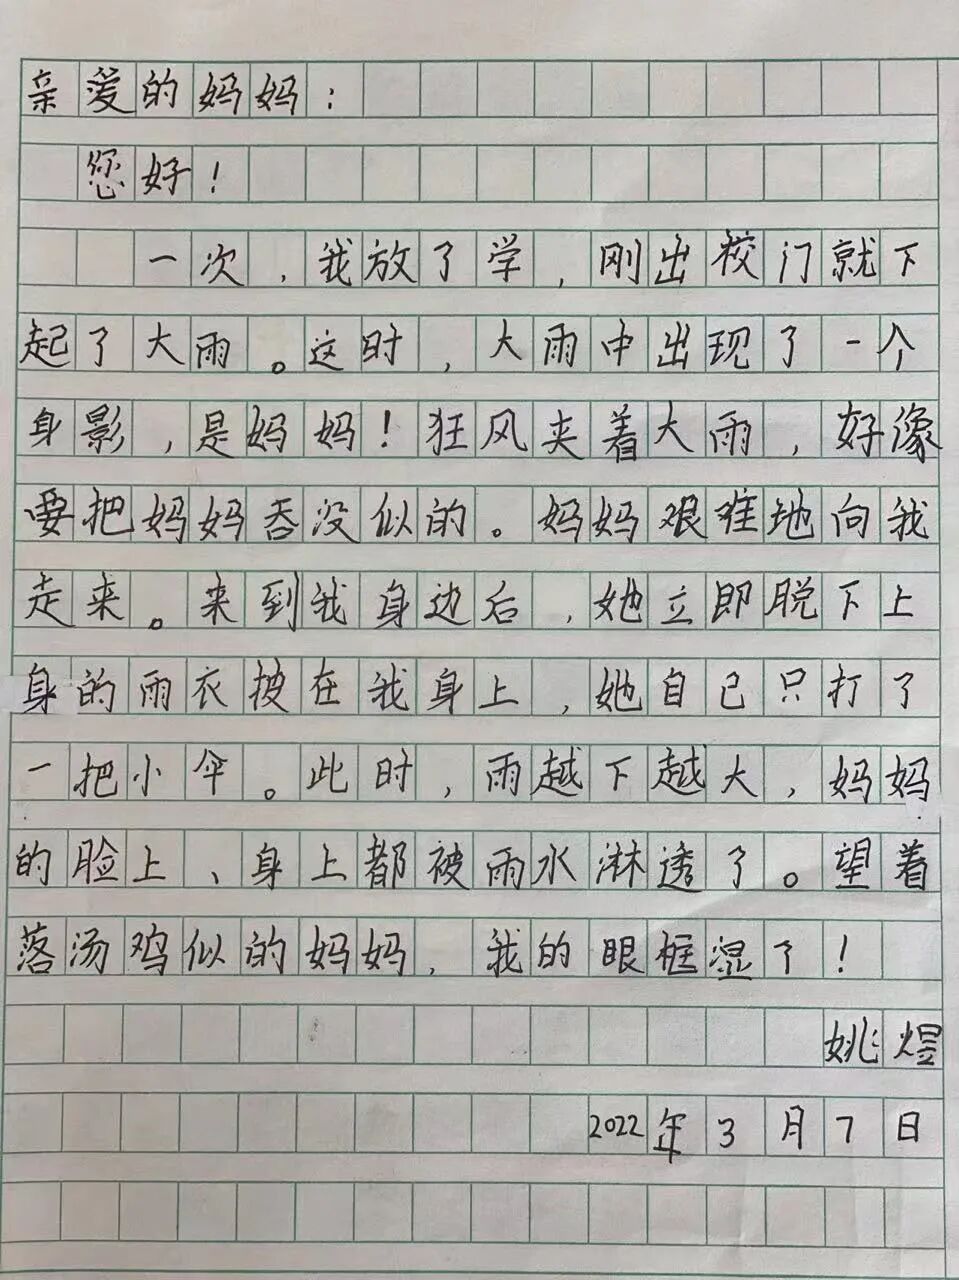 亲爱的妈妈：
您好！
一次，我放了学，刚出校门就下
起了大雨。这时，大雨中出现了一个
身影，是妈妈！狂风夹着大雨，好像
要把妈妈吞没似的。妈妈艰难地向我
走来。来到我身边后，她立即脱下上
身的雨衣披在我身上，她自己只打了
一把小伞。此时，雨越下越大，妈妈
的脸上、身上都被雨水淋透了。望着
落汤鸡似的妈妈，我的眼框湿了！
姚煜
2022年3月7日